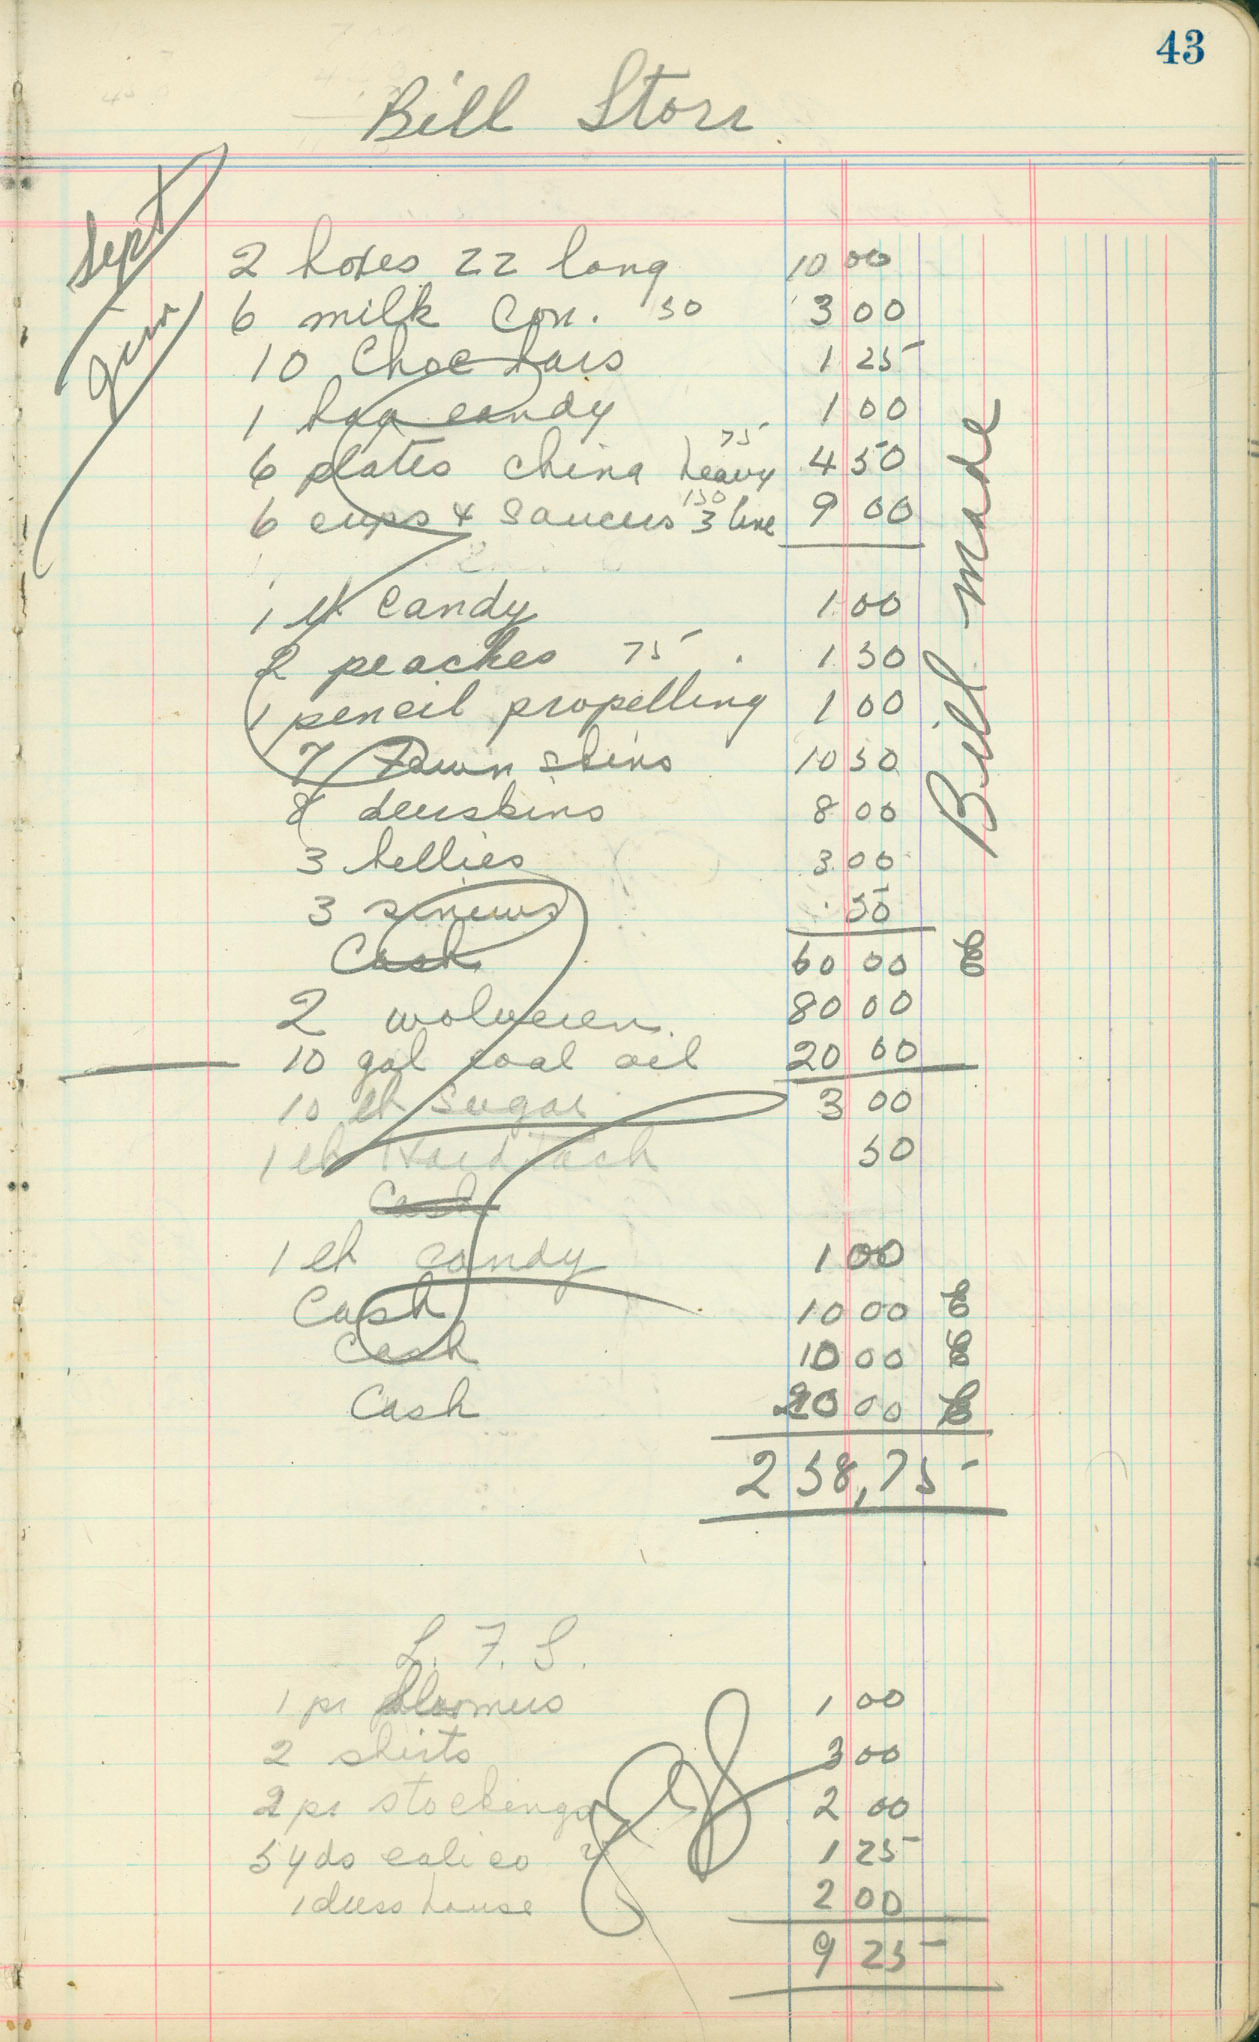 43
Bill Storr
Sept
Jim
2 boxes 22 long 10 00
6 milk Con. 50 3 00
10 Choc bars 1 25
1 box candy 1 00
6 plates china heavy 75 4 50
6 cups & saucers 150 3 line 9 00
1 lb candy 1 00
2 peaches 75 . 1 50
1 pencil propelling 1 00
7 fawn skins 10 50
8 deerskins 8 00
3 bellies 3 00
3 sinews 50
Cash 60 00
2 wolveren. 80 00
10 gal coal oil 20 00
10 lb Sugar 3 00
1 lb Hard tack 50
Cash
1 lb candy 1 00
Cash 10 00
Cash 10 00
Cash 20 00
258,75
Bill made
L. F. S.
1 pr bloomers 1 00
2 shirts 3 00
2 pr stockings 2 00
5 yds calico 25 1 25
1 dress house 2 00
9 25